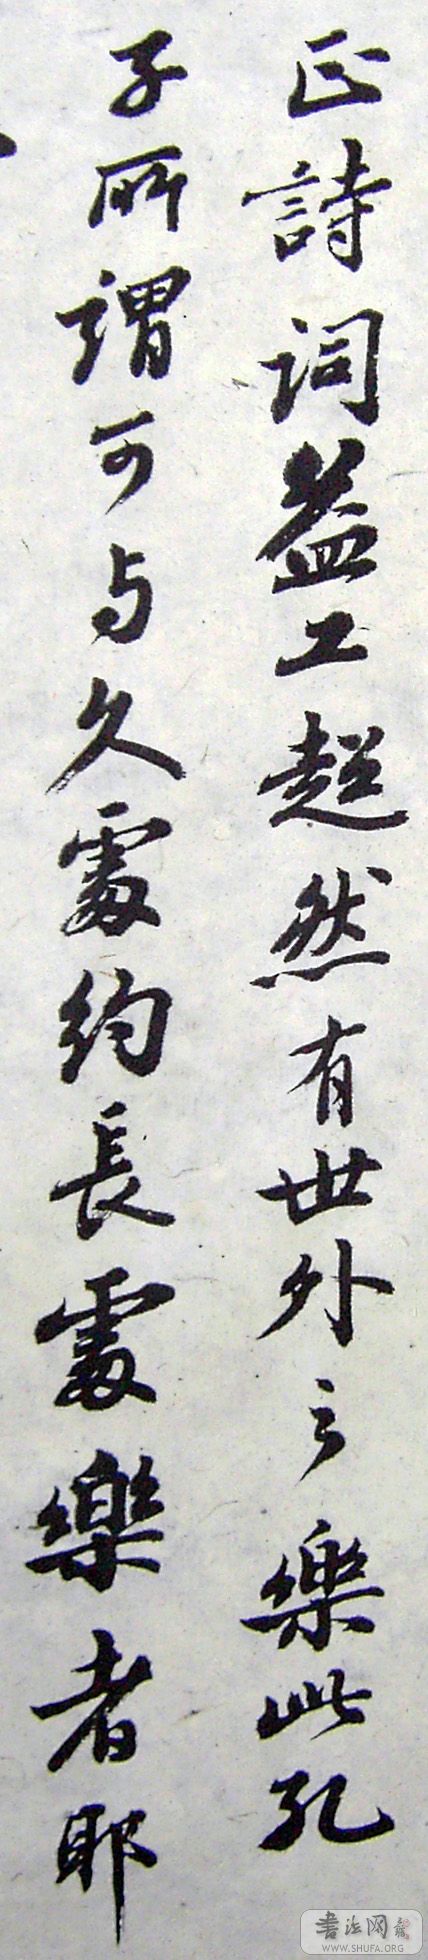 正詩詞益工超然有世外之樂此孔
子所謂可与久處約長處樂者耶
書法网
WWW.SHUFA.ORG